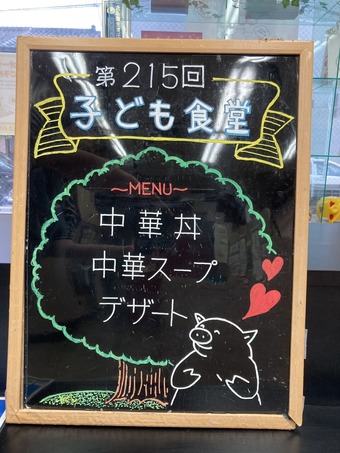 第215回
子ども食堂
～MENU～
中華丼
中華スープ
デザート